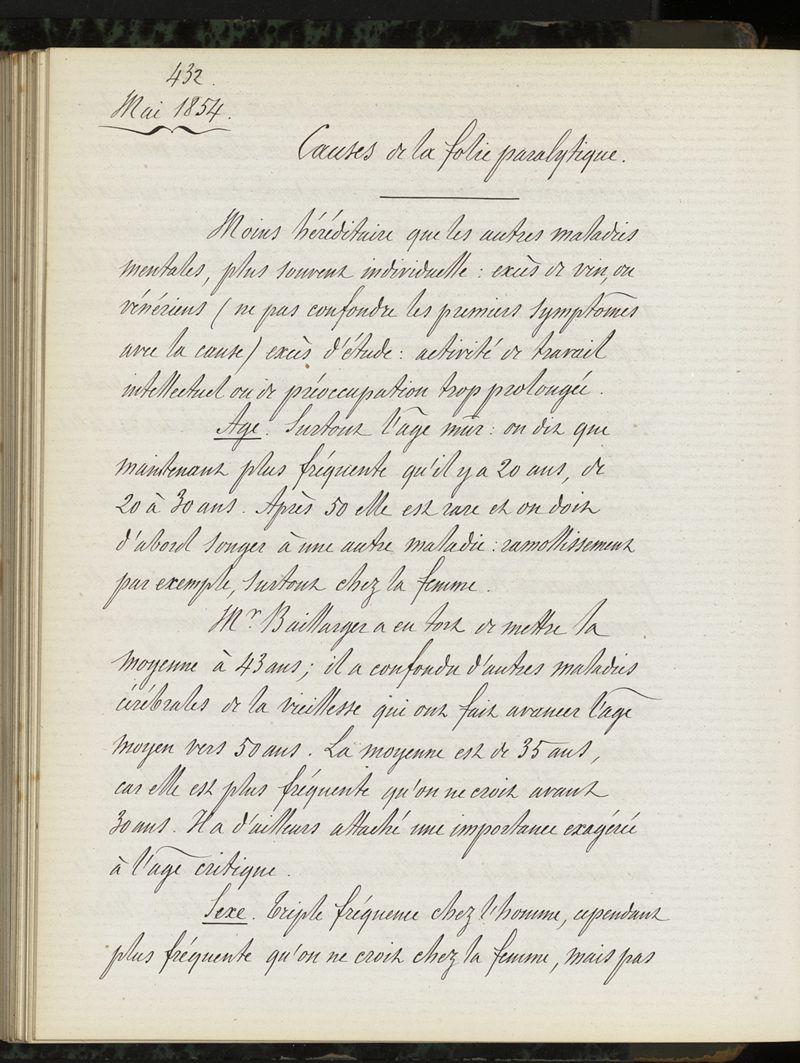 432.
Mai 1854.
Causes de la folie paralytique.
Moins héréditaire que les autres maladies
mentales, plus souvent individuelle : excès de vin, ou
vénériens ( ne pas confondre les premiers symptômes
avec la cause) excès d'étude : activité de travail
intellectuel ou de préoccupation trop prolongée.
Age. Surtout l'âge mûr : on dit que
maintenant plus fréquente qu'il y a 20 ans, de
20 à 30 ans. Après 50 elle est rare et on doit
d'abord songer à une autre maladie : ramollissement
par exemple, surtout chez la femme.
Mr. Baillarger a eu tort de mettre la
moyenne à 43 ans ; il a confondu d'autres maladies
cérébrales de la vieillesse qui ont fait avancer l'âge
moyen vers 50 ans. La moyenne est de 35 ans,
car elle est plus fréquente qu'on ne croit avant
30 ans. Il a d'ailleurs attaché une importance exagérée
à l'âge critique.
Sexe. Triple fréquence chez l'homme, cependant
plus fréquente qu'on ne croit chez la femme, mais pas